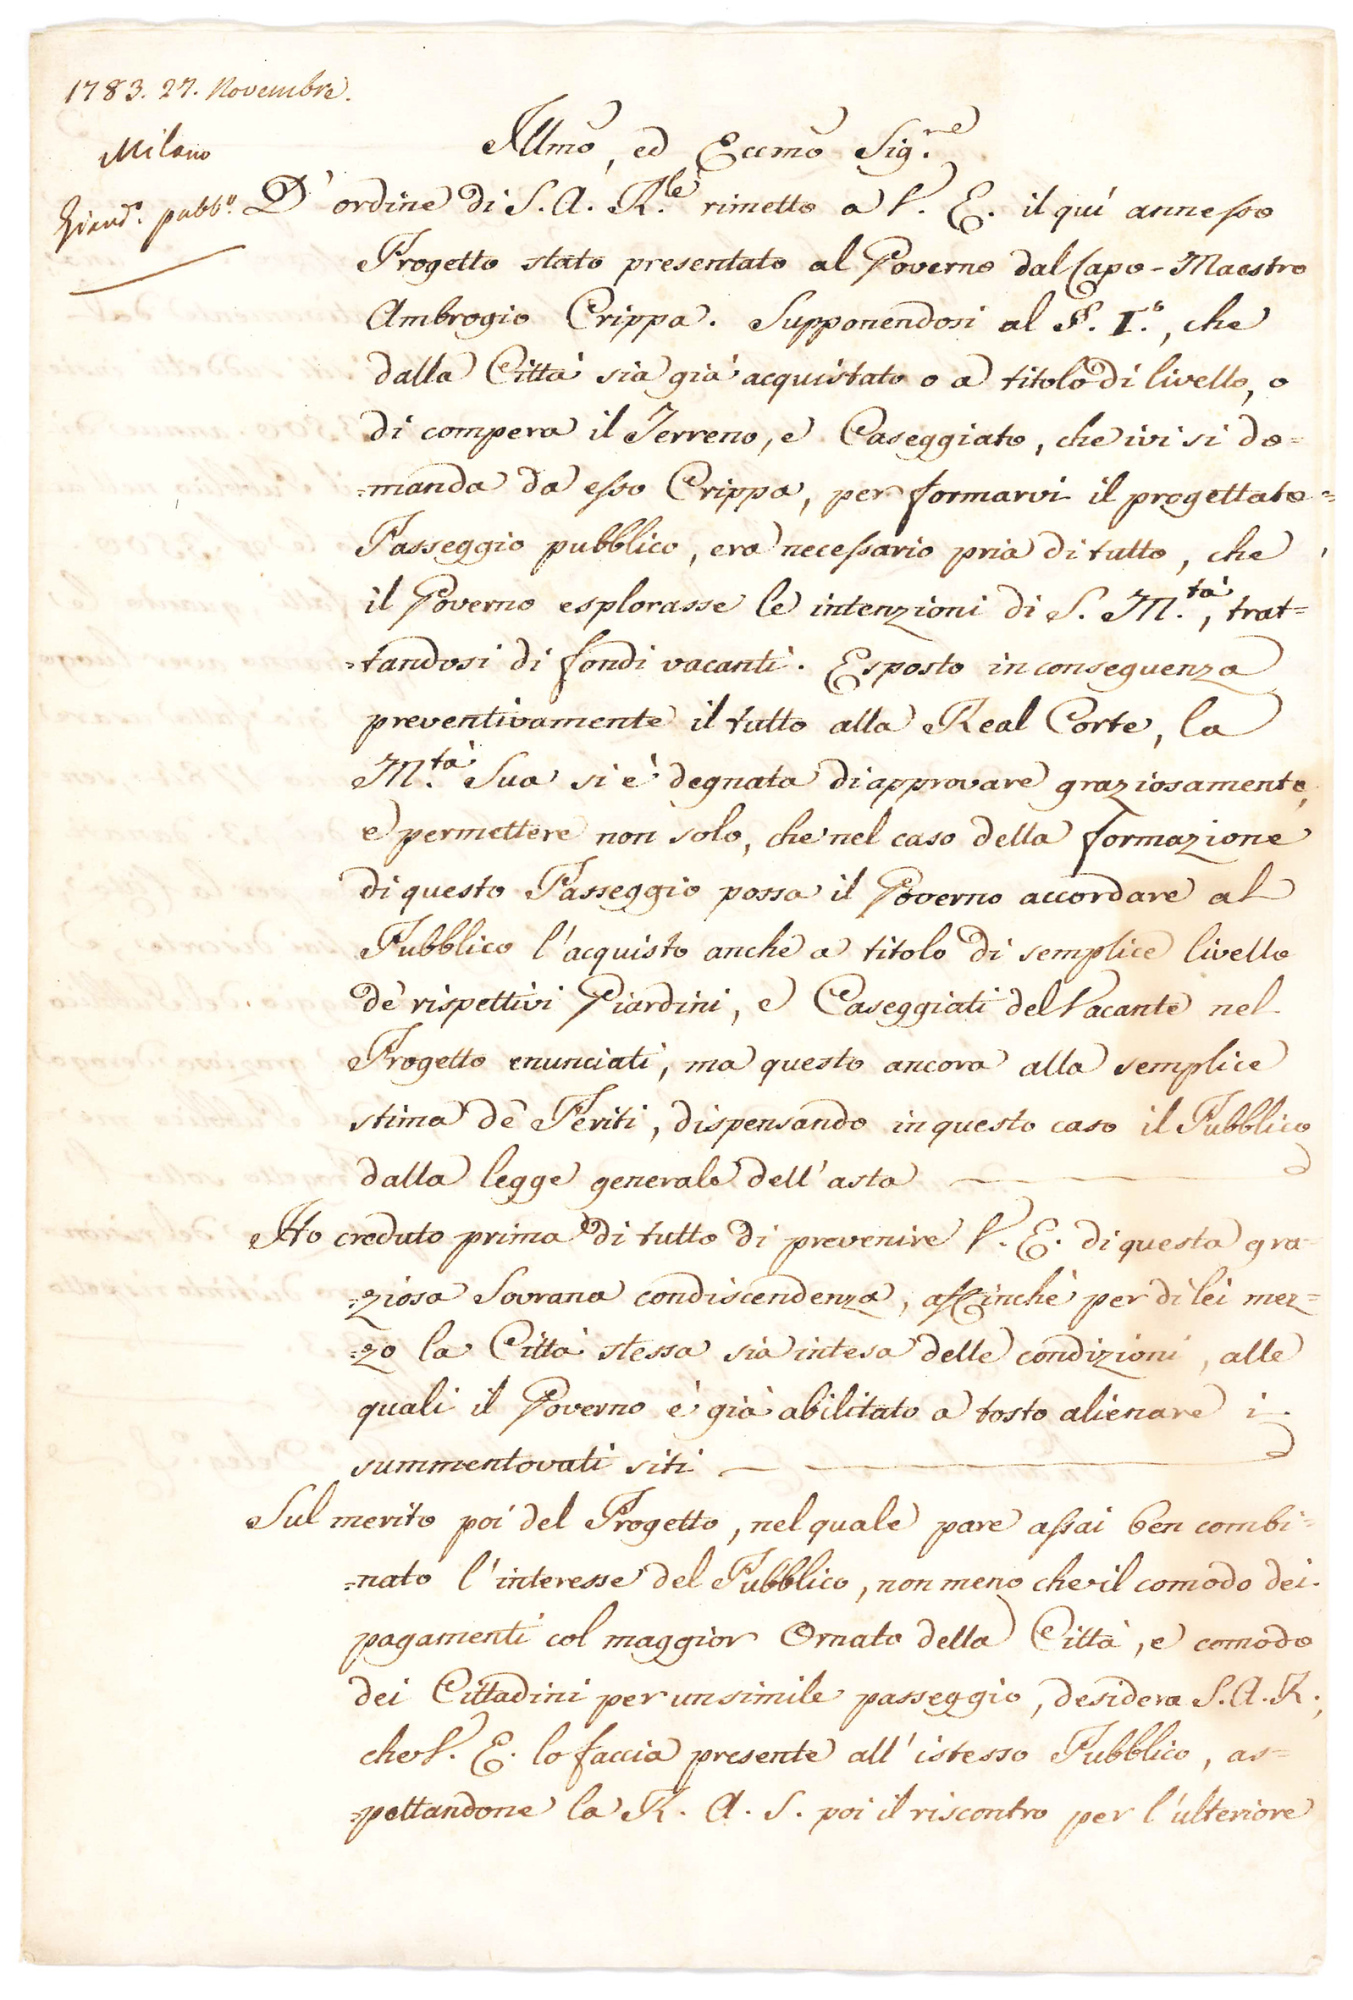 1783. 27. Novembre.
Milano
Giard.º pubb.º
Illmo, ed Eccmo Sig.re
D' ordine di S. A. R.le rimetto a V. E. il quì annesso
Progetto stato presentato al Governo dal Capo-Maestro
Ambrogio Crippa. Supponendosi al §. I.º, che
dalla Città sia già acquistato o a titolo di livello, o
di compera il Terreno, e Caseggiato, che ivi si do=
=manda da esso Crippa, per formarvi il progettato=
Passeggio pubblico, era necessario pria di tutto, che
il Governo esplorasse le intenzioni di S. M.tà, trat=
=tandosi di fondi vacanti. Esposto in conseguenza
preventivamente il tutto alla Real Corte, la
M.tà Sua si è degnata di approvare graziosamente,
e permettere non solo, che nel caso della formazione
di questo Passeggio possa il Governo accordare al
Pubblico l'acquisto anche a titolo di semplice livello
de' rispettivi Giardini, e Caseggiati del Vacante nel
Progetto enunciati, ma questo ancora alla semplice
stima de' Periti, dispensando in questo caso il Pubblico
dalla legge generale dell'asta
Ho creduto prima di tutto di prevenire V. E. di questa gra=
=ziosa Sovrana condiscendenza, affinchè per di lei mez=
=zo la Città stessa sia intesa delle condizioni, alle
quali il Governo è già abilitato a tosto alienare i
summentovati siti
Sul merito poi del Progetto, nel quale pare assai ben combi=
=nato l'interesse del Pubblico, non meno che il comodo dei
pagamenti col maggior Ornato della Città, e comodo
dei Cittadini per un simile passeggio, desidera S. A. R.,
che V. E. lo faccia presente all'istesso Pubblico, as=
=pettandone la R. A. S. poi il riscontro per l'ulteriore